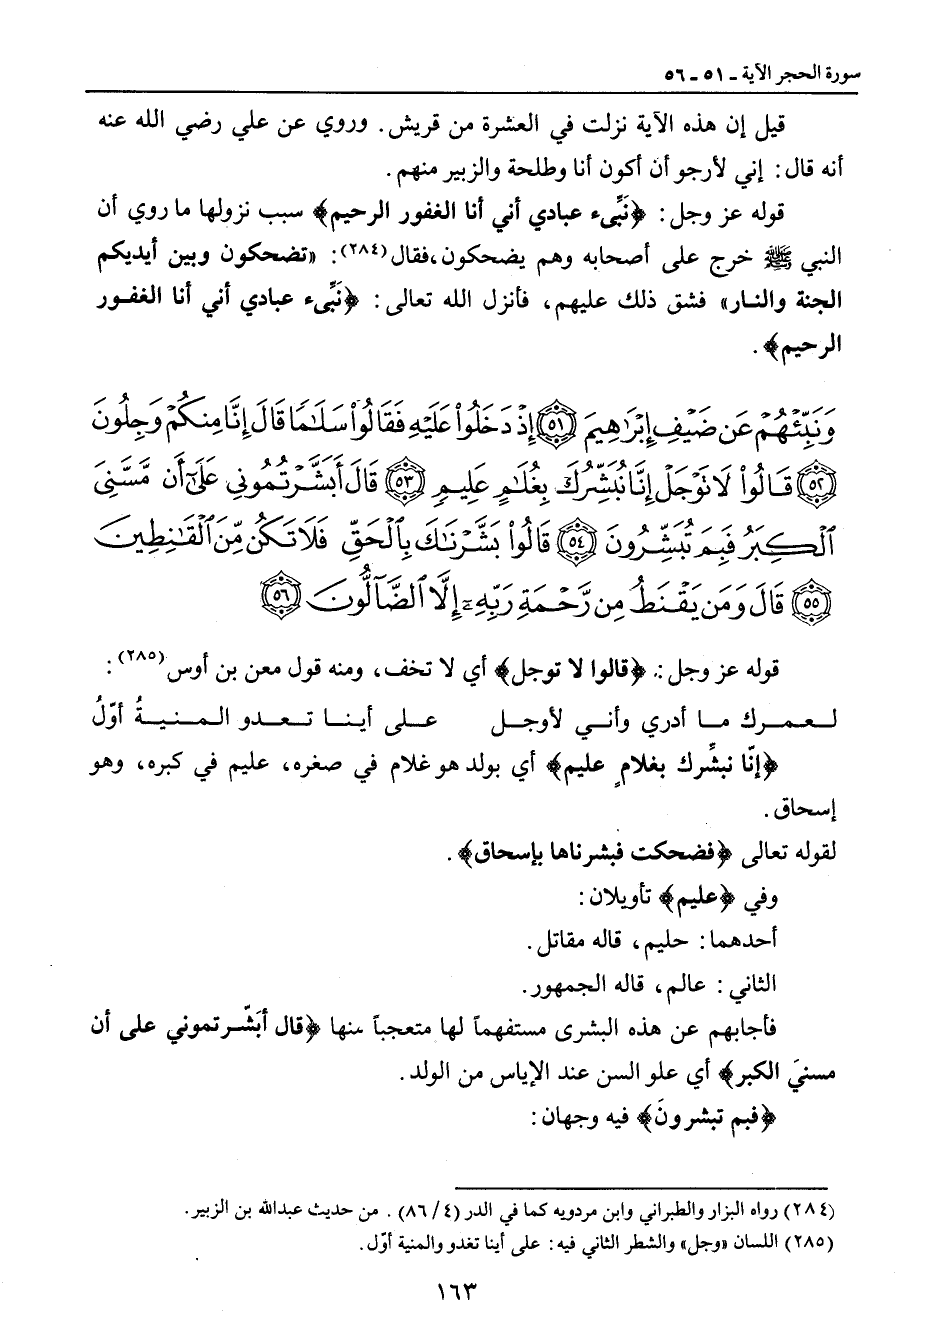 سورة الحجر الآية ـ ٥١ ـ ٥٦
قيل إن هذه الآية نزلت في العشرة من قريش. وروي عن علي رضي الله عنه
أنه قال: إني لأرجو أن أكون أنا وطلحة والزبير منهم.
قوله عز وجل: ﴿نَبِّىء عبادي أني أنا الغفور الرحيم﴾ سبب نزولها ما روي أن
النبي ﷺ خرج على أصحابه وهم يضحكون،فقال(٢٨٤): «تضحكون وبين أيديكم
الجنة والنار» فشق ذلك عليهم، فأنزل الله تعالى: ﴿نَبِّىء عبادي أني أنا الغفور
الرحيم﴾.
وَنَبِّئْهُمْ عَن ضَيْفِ إِبْرَاهِيمَ ٥١ إِذْ دَخَلُوا۟ عَلَيْهِ فَقَالُوا۟ سَلَٰمًا قَالَ إِنَّا مِنكُمْ وَجِلُونَ
٥٢ قَالُوا۟ لَا تَوْجَلْ إِنَّا نُبَشِّرُكَ بِغُلَٰمٍ عَلِيمٍ ٥٣ قَالَ أَبَشَّرْتُمُونِي عَلَىٰٓ أَن مَّسَّنِىَ
ٱلْكِبَرُ فَبِمَ تُبَشِّرُونَ ٥٤ قَالُوا۟ بَشَّرْنَٰكَ بِٱلْحَقِّ فَلَا تَكُن مِّنَ ٱلْقَٰنِطِينَ
٥٥ قَالَ وَمَن يَقْنَطُ مِن رَّحْمَةِ رَبِّهِۦٓ إِلَّا ٱلضَّآلُّونَ ٥٦
قوله عز وجل: ﴿قالوا لا توجل﴾ أي لا تخف، ومنه قول معن بن أوس(٢٨٥):
لعمرك ما أدري وأني لأوجل على أينا تعدو المنيةُ أوّلُ
﴿إنّا نبشِّرك بغلامٍ عليم﴾ أي بولد هو غلام في صغره، عليم في كبره، وهو
إسحاق.
لقوله تعالى ﴿فضحكت فبشرناها بإسحاق﴾.
وفي ﴿عليم﴾ تأويلان:
أحدهما: حليم، قاله مقاتل.
الثاني: عالم، قاله الجمهور.
فأجابهم عن هذه البشرى مستفهماً لها متعجباً منها ﴿قال أبَشّرتموني على أن
مسنيَ الكبر﴾ أي علو السن عند الإياس من الولد.
﴿فبم تبشرونَ﴾ فيه وجهان:
(٢٨٤) رواه البزار والطبراني وابن مردويه كما في الدر (٤/٨٦). من حديث عبدالله بن الزبير.
(٢٨٥) اللسان «وجل» والشطر الثاني فيه: على أينا تغدو والمنية أوّل.
١٦٣